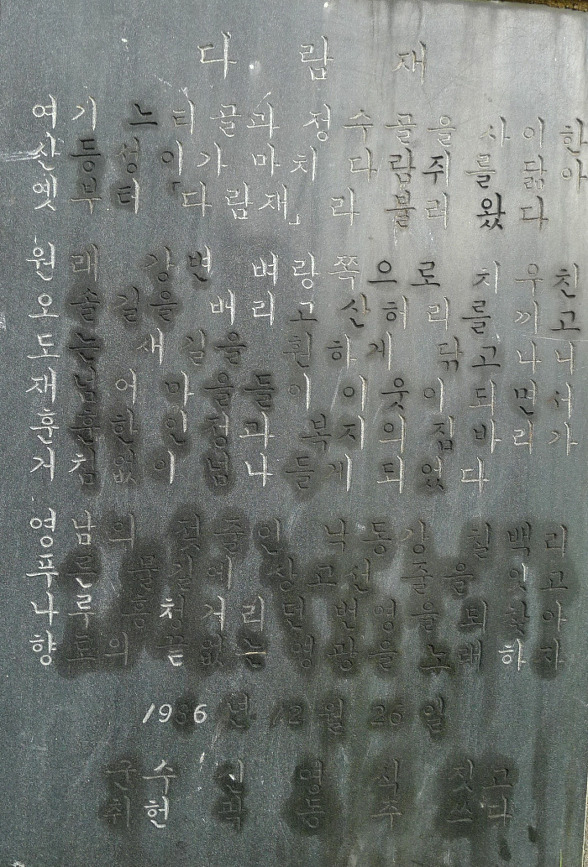 다람재
여기 느티골과 정수골을 사이한
산등성이가 마치 다람쥐를 닮아
옛부터 「다람재」라 불리 왔다
원래 강변 벼랑쪽으로 치우친
오솔길을 배리고 산허리를 끼고
도는 새길을 훤하게 닦고나니
재넘어 마을들이 이웃이 되면서
훈훈한 인정과 복지의 짐바리가
거침없이 넘나들게 되었다
영남의 젖줄인 낙동강 칠백리
푸른 물길에 상고선 줄을 잇고
나루 흥청거리던 번영을 되찾아
향토의 끝없는 영광을 노래하자
1986년 12월 26일
군수 짓고
취헌 곽동주 쓰다